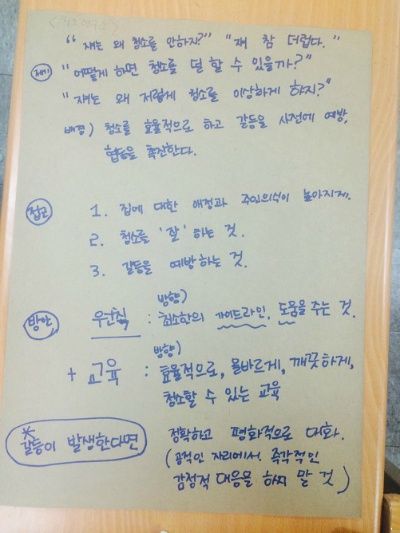 "쟤는 왜 청소를 안하지?" "쟤 참 더럽다."
제기 "어떻게 하면 청소를 덜 할 수 있을까?"
"쟤는 왜 저렇게 청소를 이상하게 하지?"
배경) 청소를 효율적으로 하고 갈등을 사전에 예방,
협동을 촉진한다.
접근 1. 집에 대한 애정과 주인의식이 높아지게.
2. 청소를 '잘' 하는 것.
3. 갈등을 예방하는 것.
방향)
방안 우선칙 : 최소한의 가이드라인, 도움을 주는 것.
방향)
+ 교육 : 효율적으로, 올바르게, 깨끗하게,
청소할 수 있는 교육
* 갈등이 발생한다면 정확하고 평화적으로 대화.
(공적인 자리에서, 즉각적인
감정적 대응을 하지 말 것)